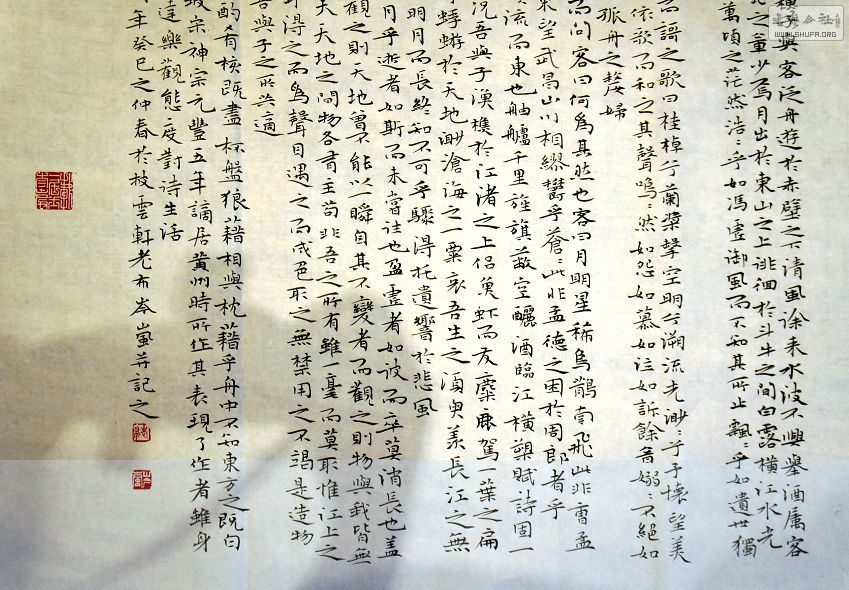 書法公社
WWW.SHUFA.ORG
子與客泛舟遊於赤壁之下清風徐來水波不興舉酒屬客
之章少焉月出於東山之上徘徊於斗牛之間白露橫江水光
萬頃之茫然浩浩乎如馮虛御風而不知其所止飄飄乎如遺世獨
而歌之歌曰桂棹兮蘭槳擊空明兮溯流光渺渺兮于懷望美
依歌而和之其聲嗚嗚然如怨如慕如泣如訴餘音嫋嫋不絕如
孤舟之嫠婦
而問客曰何為其然也客曰月明星稀烏鵲南飛此非曹孟
東望武昌山川相繆鬱乎蒼蒼此非孟德之困於周郎者乎
流而東也舳艫千里旌旗蔽空釃酒臨江橫槊賦詩固一
況吾與子漁樵於江渚之上侶魚蝦而友麋鹿駕一葉之扁
蜉蝣於天地渺滄海之一粟哀吾生之須臾羨長江之無
明月而長終知不可乎驟得托遺響於悲風
月乎逝者如斯而未嘗往也盈虛者如彼而卒莫消長也蓋
觀之則天地曾不能以一瞬自其不變者而觀之則物與我皆無
夫天地之間物各有主苟非吾之所有雖一毫而莫取惟江上之
耳得之而為聲目遇之而成色取之無禁用之不竭是造物
吾與子之所共適
酌肴核既盡杯盤狼藉相與枕藉乎舟中不知東方之既白
坡宋神宗元豐五年謫居黃州時所作其表現了作者雖身
達樂觀態度對詩生活
年癸巳之仲春於披雲軒老布岑嵐并記之